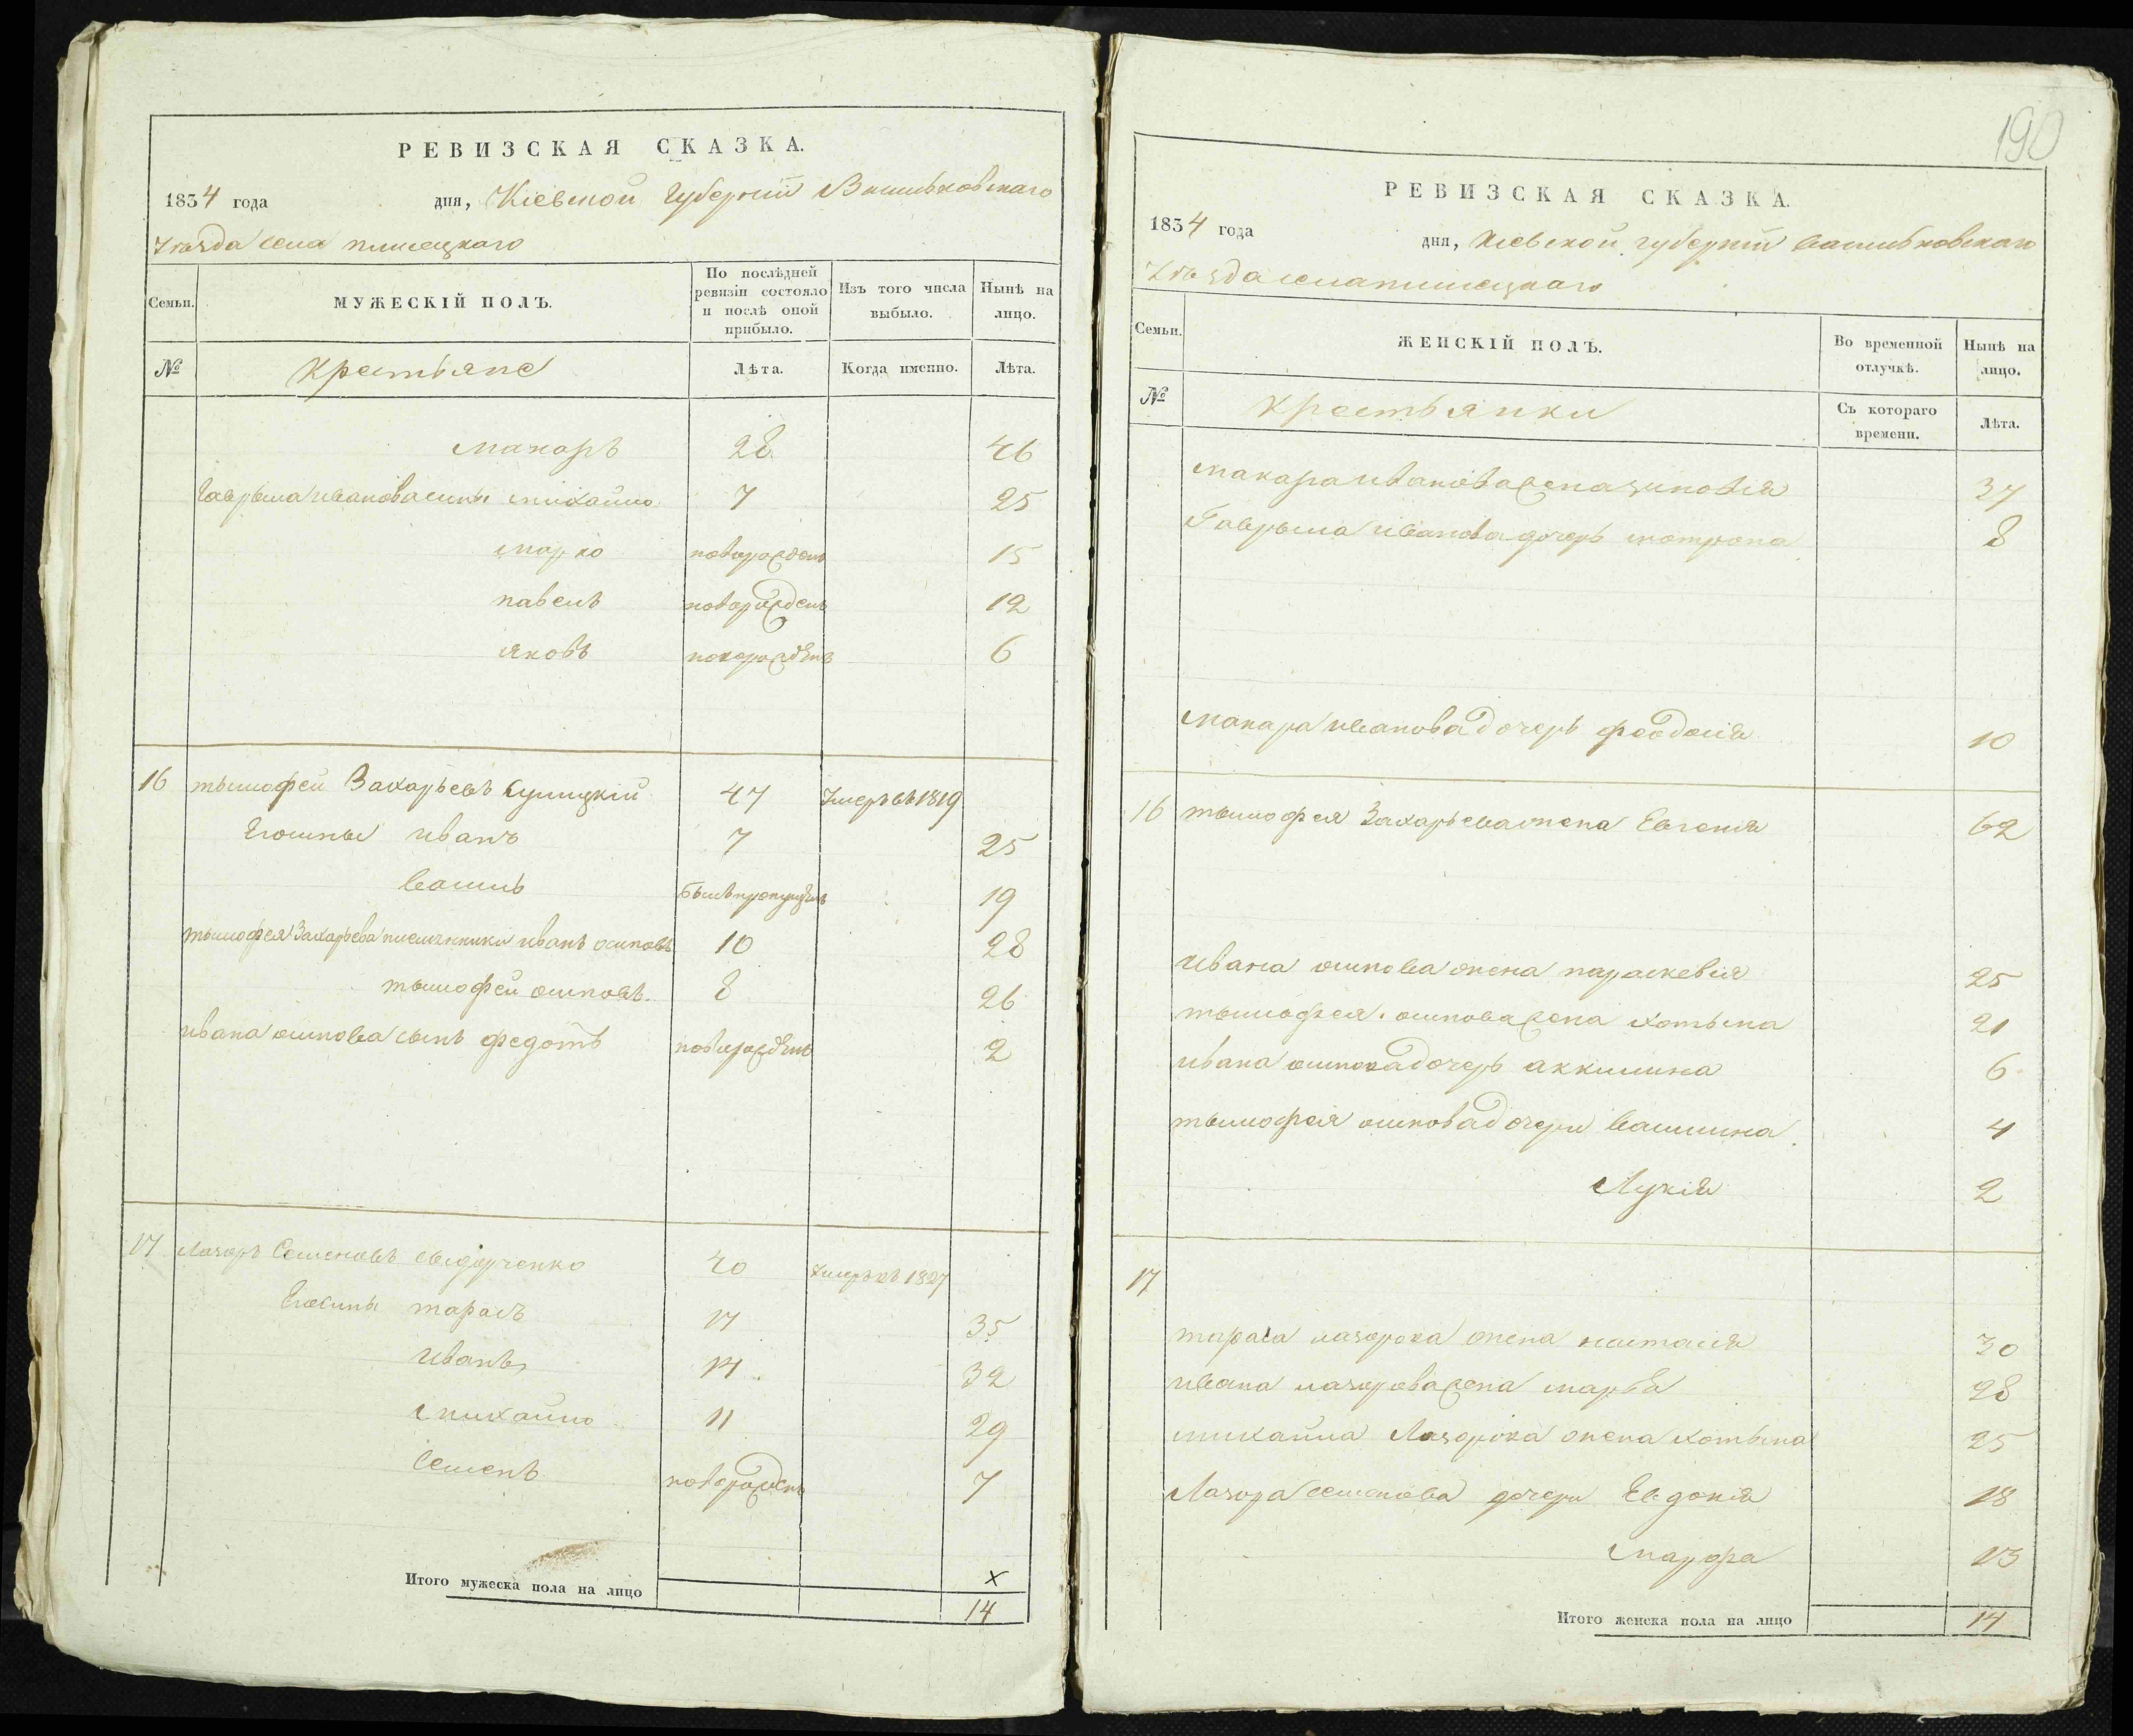 РЕВИЗСКАЯ СКАЗКА.
1834 года дня, Кіевской Губерніи Васильковскаго
Уѣзда села плисецкаго
Семьи. МУЖЕСКІЙ ПОЛЪ. По послѣдней ревизіи состояло и послѣ оной прибыло. Изъ того числа выбыло. Нынѣ на лицо.
№ крестьяне Лѣта. Когда именно. Лѣта.
макаръ 28 46
Гаврыла иванова сыны михайло 7 25
марко новорожденъ 15
павелъ новорожденъ 12
яковъ новорожденъ 6
16 тымофей Захарьевъ 47 умеръ въ 1819
Егосыны иванъ 7 25
василь былъ пропущенъ 19
тымофея Захарьева племянники иванъ осиповъ 10 28
тымофей осиповъ. 8 26
ивана осипова сынъ федотъ новорожденъ 2
17 Лазоръ Семеновъ 40 умеръ въ 1827
Егосыны тарасъ 17 35
иванъ 14 32
михайло 11 29
семенъ новорожденъ 7
Итого мужеска пола на лицо х
14
190
РЕВИЗСКАЯ СКАЗКА.
1834 года дня, Кіевской губерніи васильковскаго
Уѣзда села плисецкаго
Семьи. ЖЕНСКІЙ ПОЛЪ. Во временной отлучкѣ. Нынѣ на лицо.
№ крестьянки Съ котораго времени. Лѣта.
макара иванова жена зиновія 37
Гаврыла иванова дочерь мотрона 8
макара иванова дочерь феодосія 10
16 тымофея Захарьева жена Евгенія 62
ивана осипова жена параскевія 25
тымофея осипова жена хотына 21
ивана осипова дочерь аккилина 6
тымофея осипова дочери василина 4
Лукія 2
17
тараса лазорова жена настасія 30
ивана лазорова жена марья 28
михайла Лазорова жена хотына 25
Лазора семенова дочери Евдокія 18
марфа 13
Итого женска пола на лицо 14